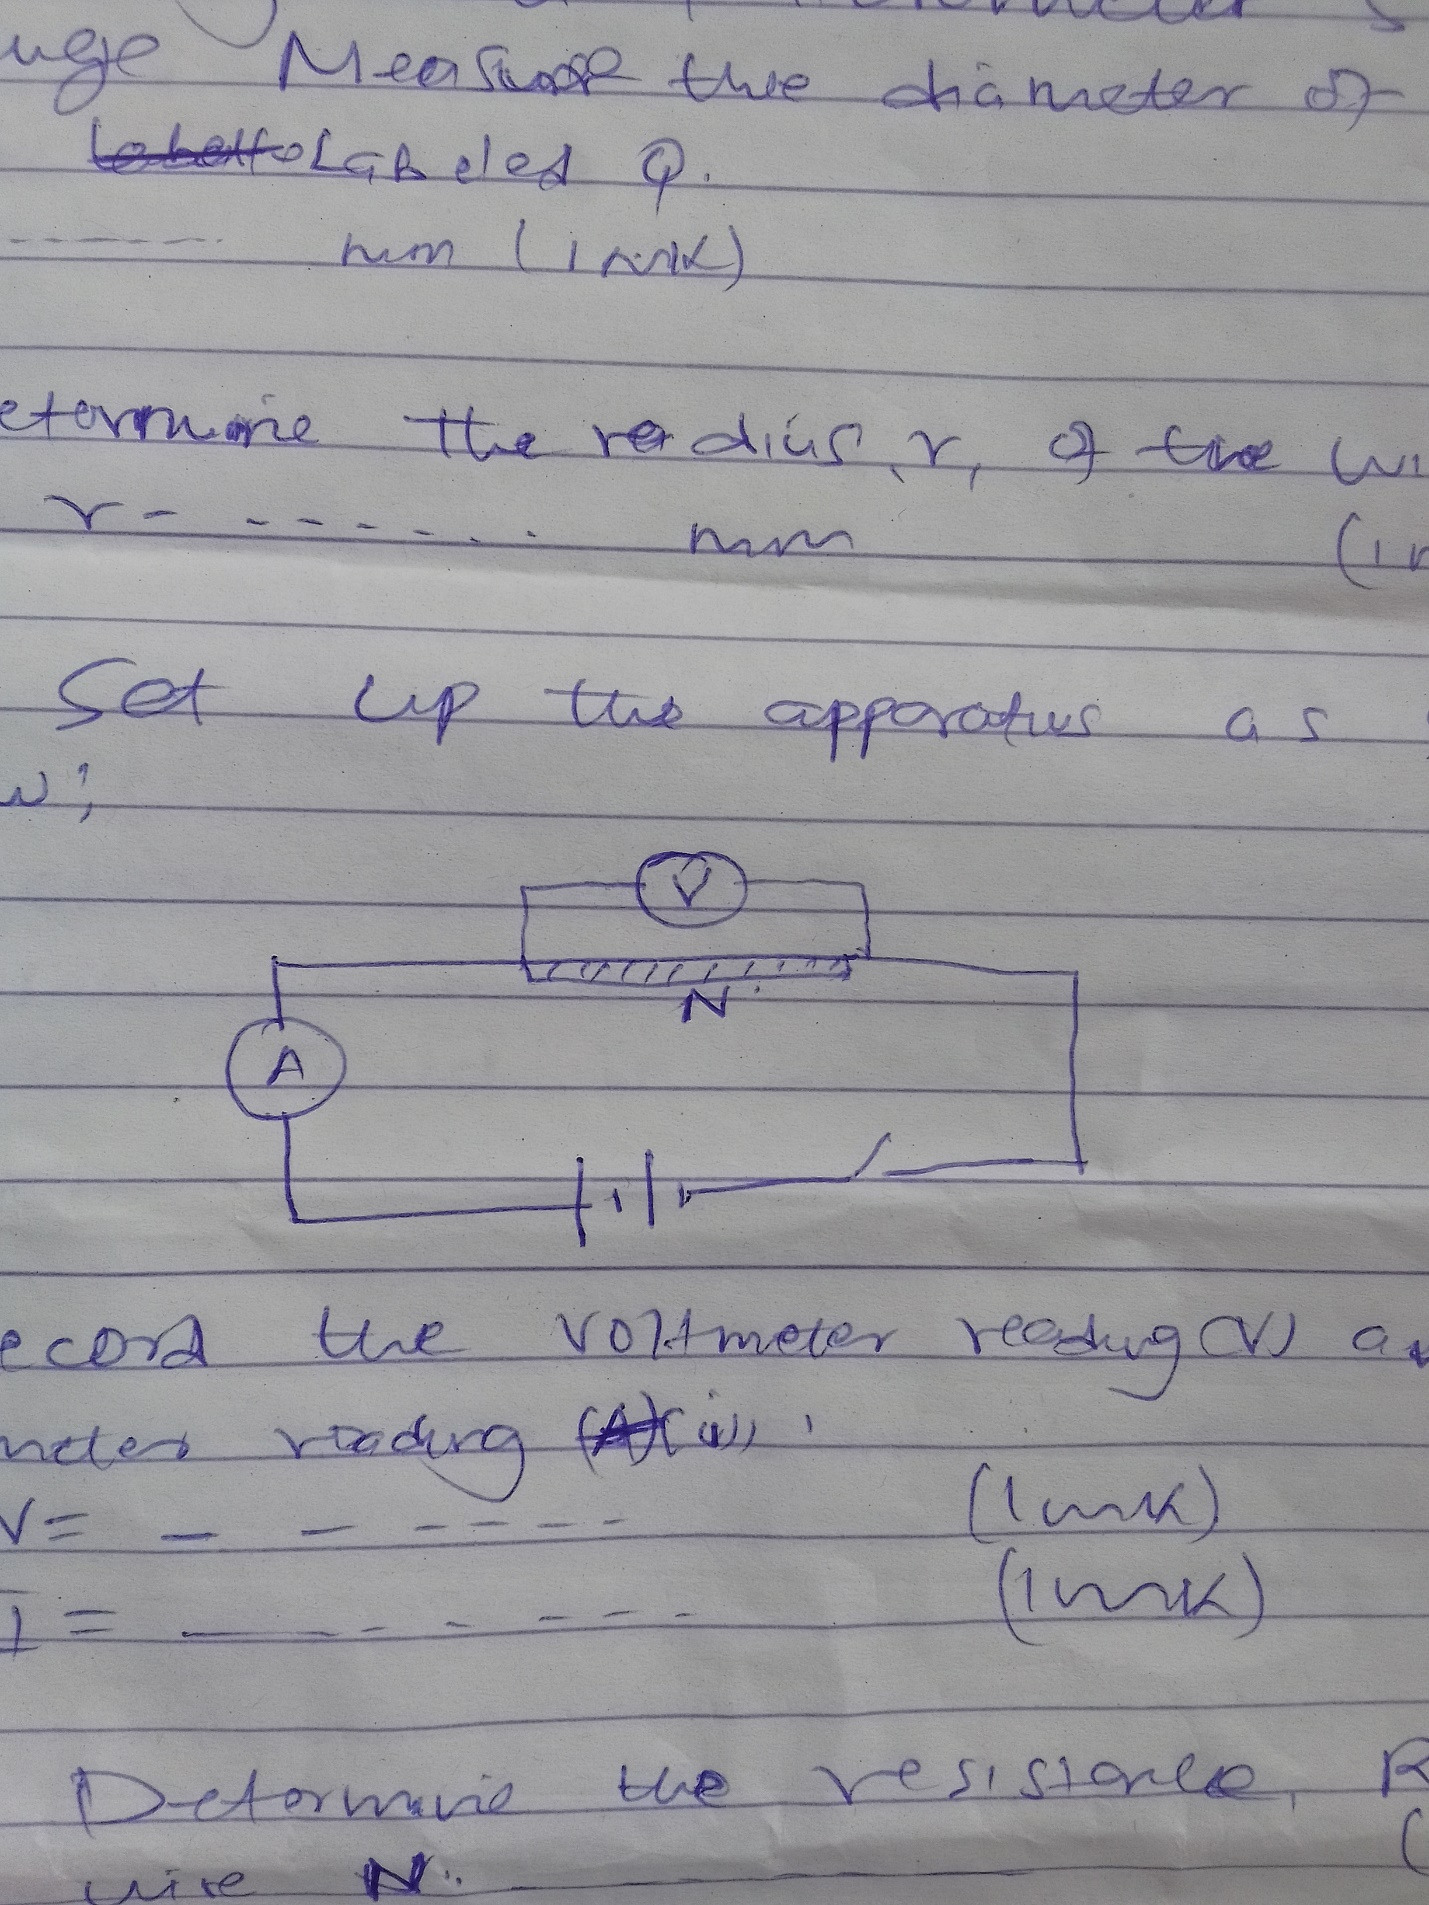 uge Measure the diameter of
Labeled Q.
------- mm (1mk)
etermine the radius, r, of the wi
r - ------ mm (1m
Set up the apparatus as
w;
V
N
A
ecord the voltmeter reading (V) an
meter reading (A) (i),
V= - - ----- (1mk)
I = ------- (1mk)
Determine the resistance, R
(
wire N.